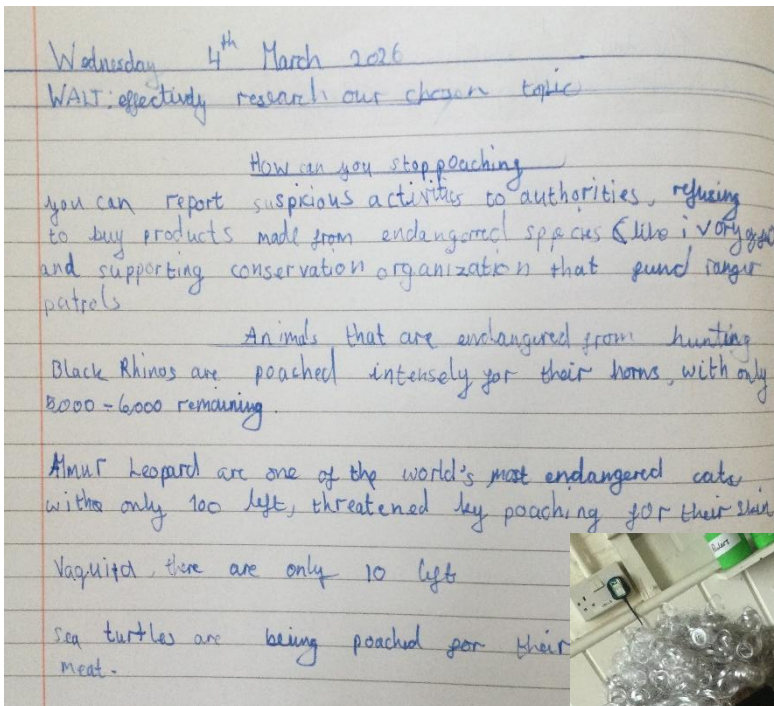 Wednesday 4th March 2026
WALT: effectively research our chosen topic
How can you stop poaching
you can report suspicious activities to authorities, refusing
to buy products made from endangerred species (like ivory
and supporting conservation organization that fund ranger
patrols
Animals that are endangered from hunting
Black Rhinos are poached intensely for their horns, with only
5,000 - 6,000 remaining.
Almur Leopard are one of the world's most endangered cats
with only 100 left, threatened by poaching for their skin
Vaquita, there are only 10 left
Sea turtles are being poached for their
meat.
Rulers